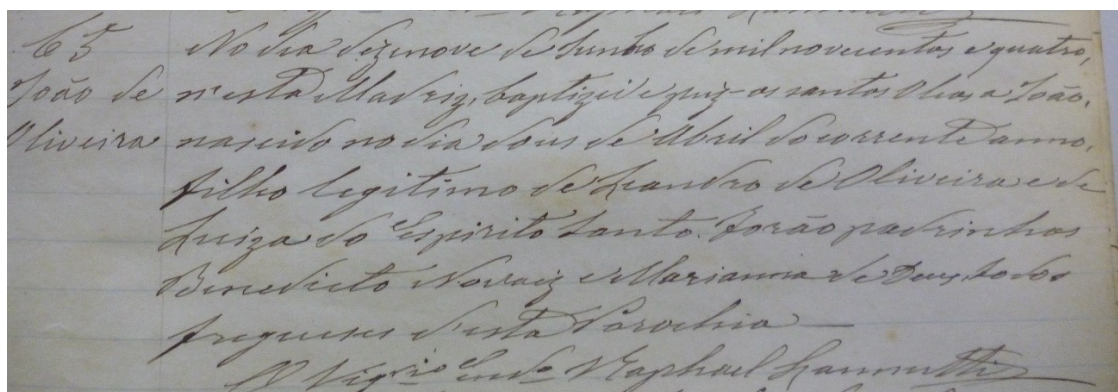 65 No dia dezenove de Junho de mil novecentos e quatro,
João de n'esta Madriz, baptizei e puz os santos Oleos a João,
Oliveira nascido no dia dous de Abril do corrente anno,
filho legitimo de Leandro de Oliveira e de
Luiza do Espirito Santo. Forão padrinhos
Benedicto Novaiz e Marianna de Deus, todos
freguezes d'esta Parochia
O Vigrio Encdo Raphael